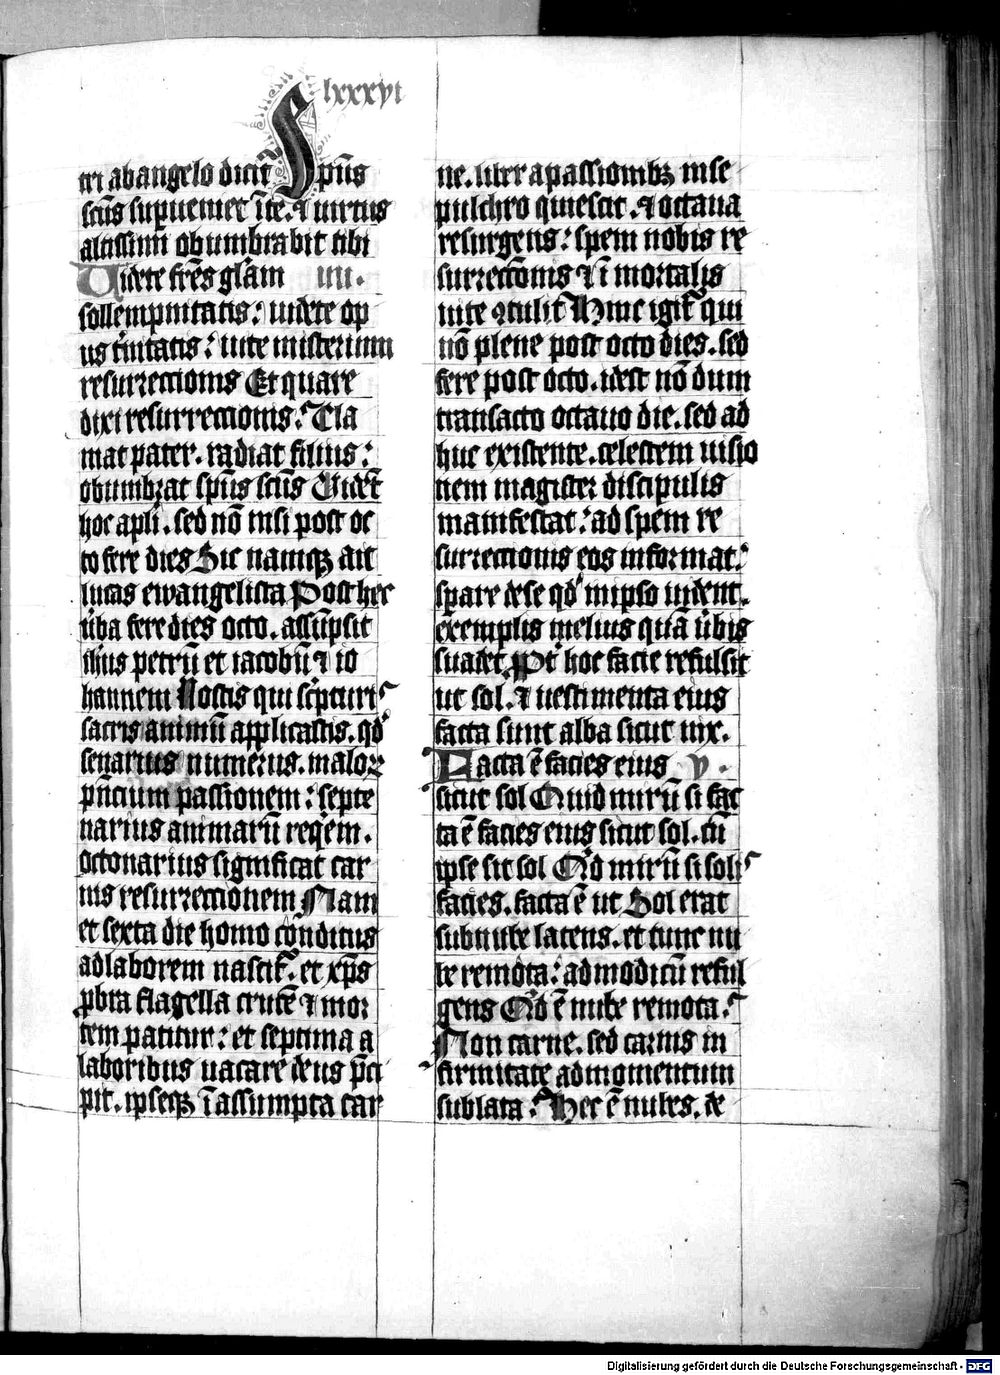 lxxxvi
tri abangelo dicit͛ Spūs
scūs supueniet ī te. ⁊ uirtus
altissimi obumbrabit tibi
Uidete fr̄es gl̄am iiii.
sollempnitatis: uidete op
us t͛nitatis: uite misterium
resurrectionis Et quare
dixi resurrectionis: Cla
mat pater. radiat filius:
obumbrat spūs scūs Uidēt
hoc apl̄i. sed nō nisi post oc
to fere dies Sic namqꝫ ait
lucas ewangelista Post hec
ūba fere dies octo. assūpsit
ih̄us petrū et iacobū ⁊ io
hannem Nostis qui sc̄pturis
sacris animū applicastis. qd͛
senarius numerus. maloꝝ
pn̄cium passionem: septe
narius animarū reqͥem.
octonarius significat car
nis resurrectionem Nam
et sexta die homo cōnditus
ad laborem nascit͛. et xp̄s
ꝓbra flagella crucē ⁊ mor
tem patitur: et septima a
laboribus uacare deus p̄ci
pit. ipseqꝫ ī assumpta car
ne. liber a passionibꝫ in se
pulchro quiescit. ⁊ octaua
resurgens: spem nobis re
surrectiōnis ⁊ ī mortalis
uite ꝯtulit Hinc igit͛ qui
nō plene post octo dies. sed
fere post octo. idest nō dum
transacto octauo die. sed ad
huc existente. celestem uisio
nem magister discipulis
manifestat: ad spem re
surrectionis eos informat:
sꝑare de se qd͛ in ipso uident.
exemplis melius quā ūbis
suadet Pt͛ hoc facie refulsit
ut sol. ⁊ uestimenta eius
facta sunt alba sicut nix.
Facta ē facies eius v.
sicut sol Quid mirū si fac
ta ē facies eius sicut sol. cū
ipse sit sol Qͥd mirū si solis
facies. facta ē ut Sol erat
sub nube latens. et tunc nu
be remota: ad modicū reful
gens Qͥd ē nube remota:
Non carne. sed carnis in
firmitate ad momentum
sublata: Hec ē nubes. de
Digitalisierung gefördert durch die Deutsche Forschungsgemeinschaft - DFG